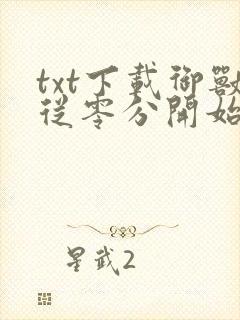 txt下載御獸
從零分開始
星武2